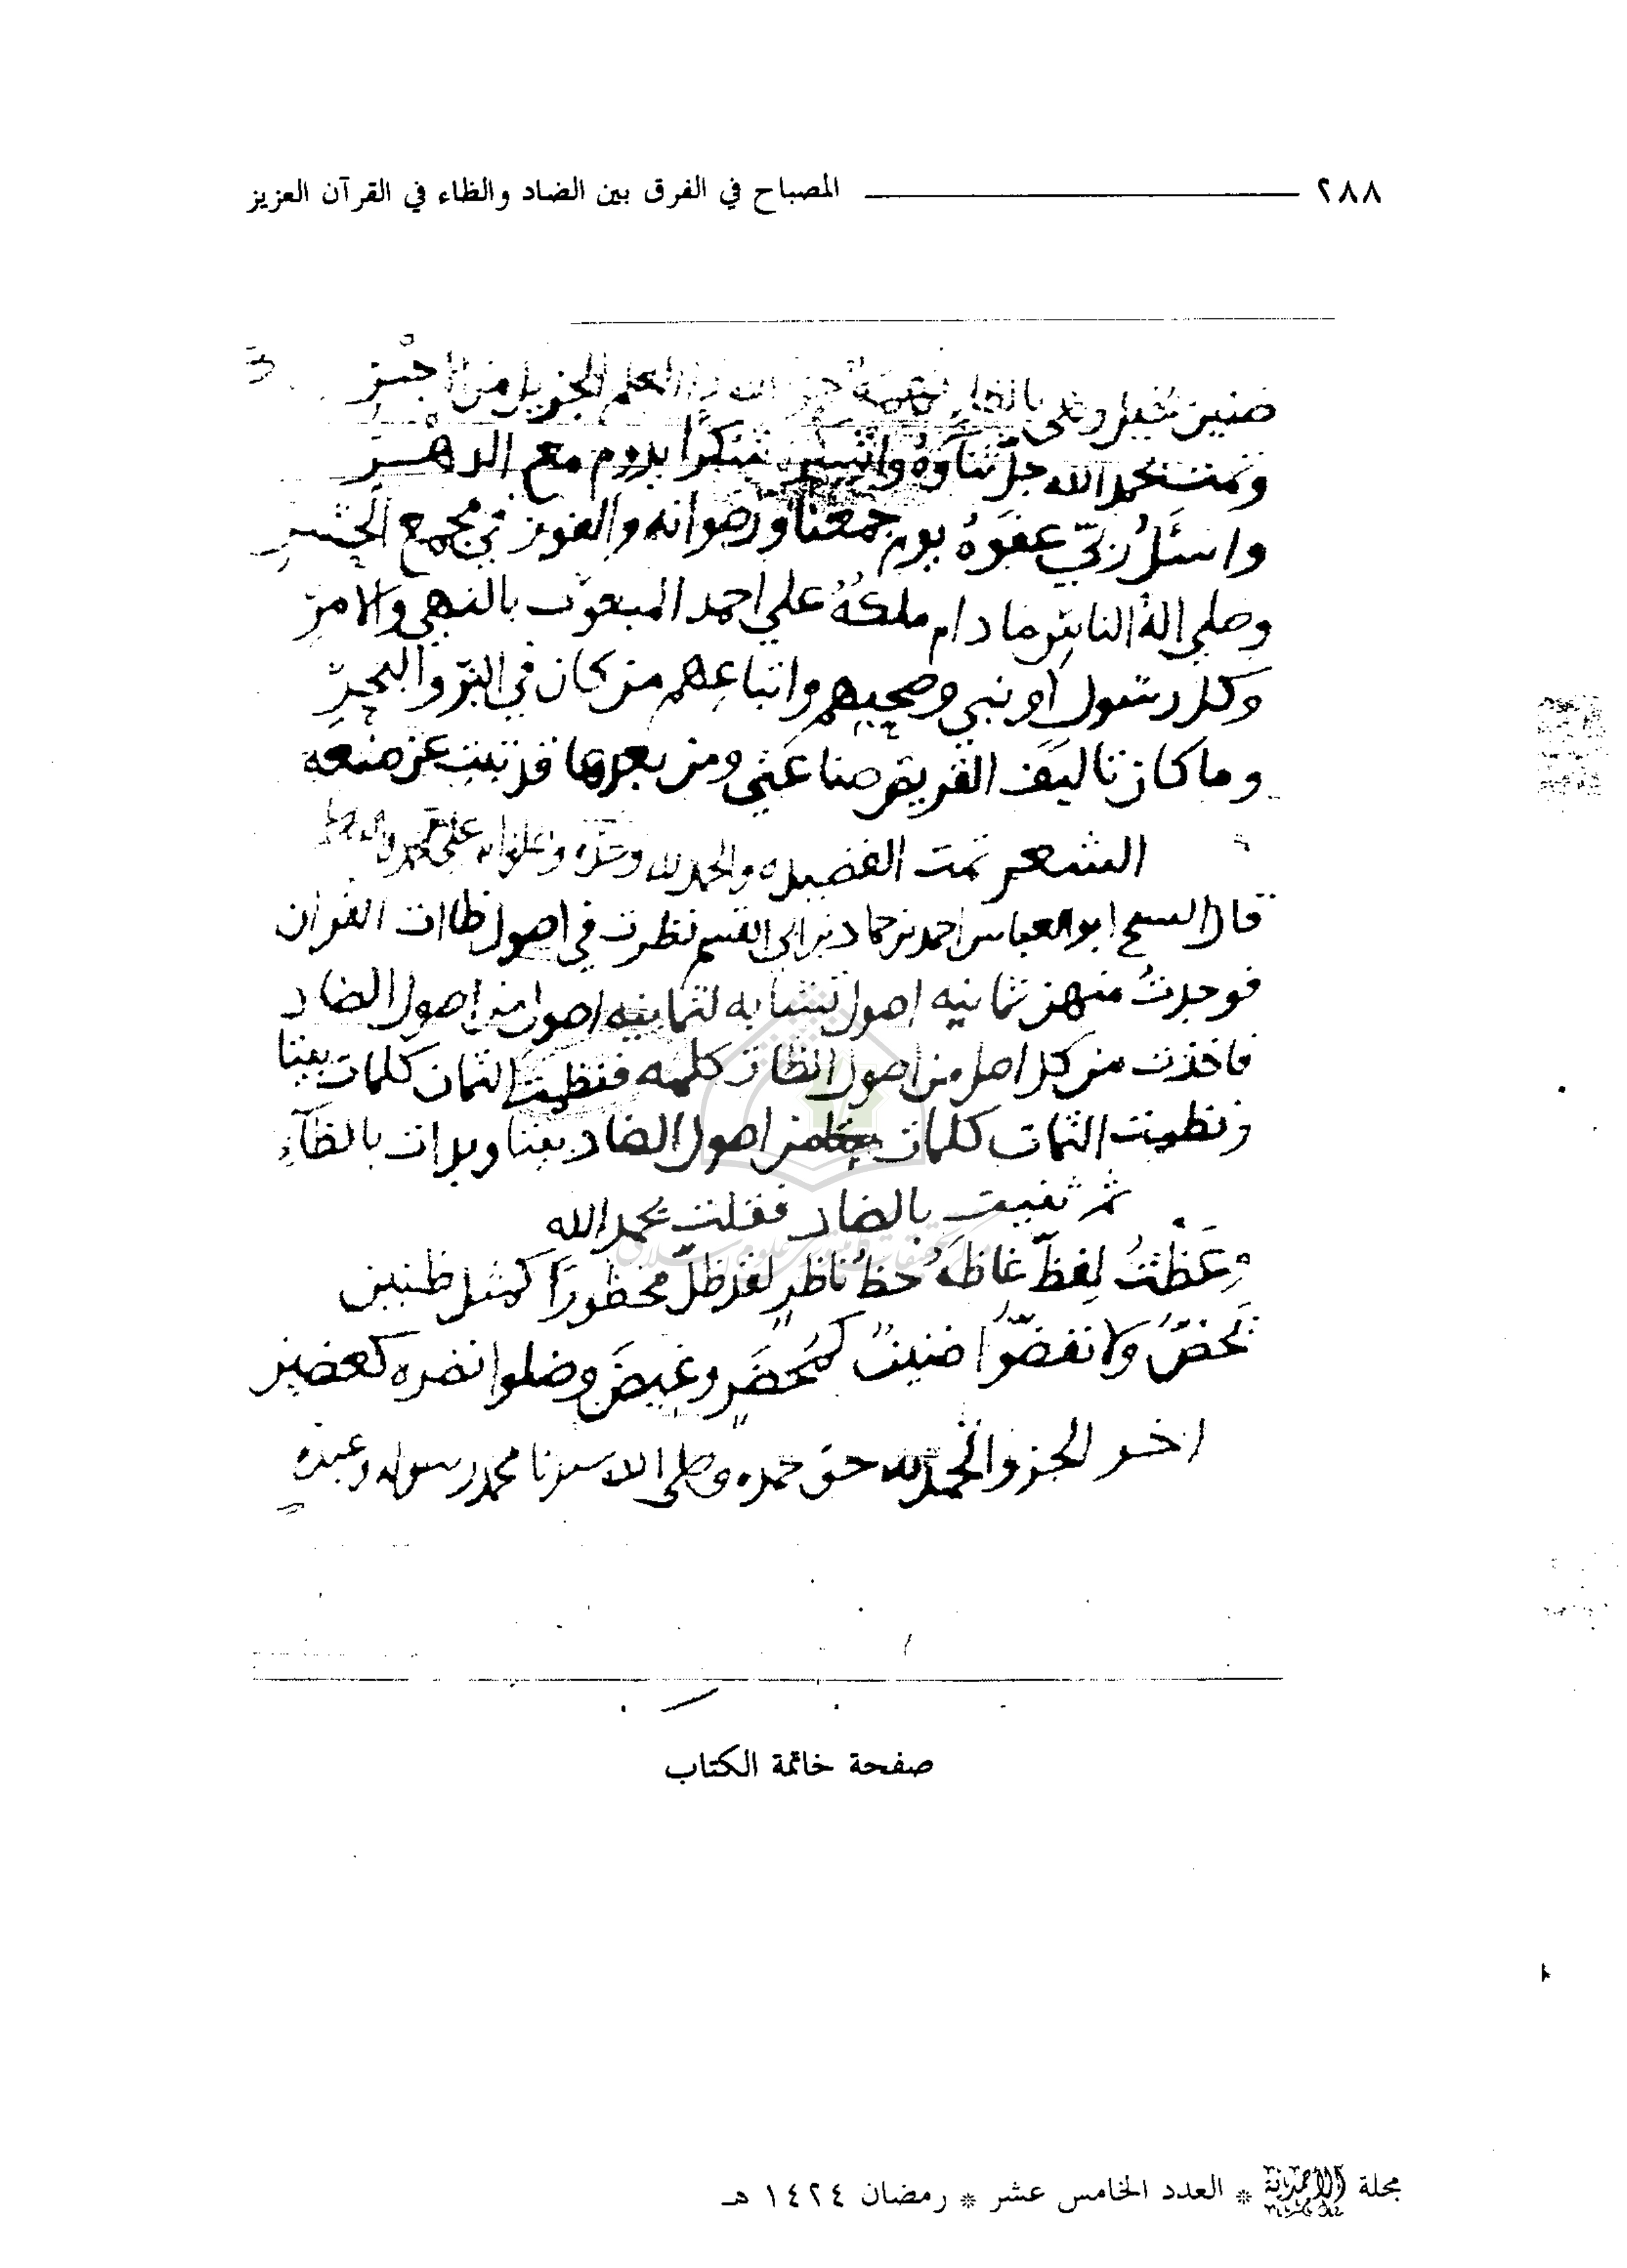 ٢٨٨ المصباح في الفرق بين الضاد والظاء في القرآن العزيز
ضنين بخيل وهي بالظاء العلم الجزيل من
وتمت بحمد الله جل ثناؤه واشكره شكرا يدوم مع الدهر
واسئل ربي عفوه يوم جمعنا ورضوانه والفوز في مجمع الحشر
وصلى اله الناس ما دام ملكه على احمد المبعوث بالنهي والامر
وكل رسول او نبي وصحبهم واتباعهم من كان في البر والبحر
وما كان تاليف القريض صناعتي ومن بعدها قد تبت عن صنعه
الشعر تمت القصيده والحمد لله وحده وصلواته على محمد واله
قال الشيخ ابو العباس احمد بن حماد بن ابي القسم نظرت في اصول ظاات القران
فوجدت منهن ثمانيه اصول تشابه لثمانيه اصول من اصول الضاد
فاخذت من كل اصل من اصول الظاات كلمه فنظمت الثمان كلمات بيتا
ونظمت الثمان كلمات من اصول الضاد بيتا وبدات بالظآء
ثم ثنيت بالضاد فقلت بحمد الله
وعظت لفظ غاظه حظ ناظر لقد ظل محظورا كمثل ظنين
تحض ولا تنفضوا ضنين كمحضر وغيض وضلوا نضره كعضين
اخر الجزو الحمد لله حق حمده وصلى الله سيدنا محمد رسوله وعبده
صفحة خاتمة الكتاب
مجلة الأحمدية * العدد الخامس عشر * رمضان ١٤٢٤ هـ